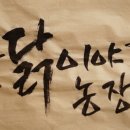 닭이야기
농장